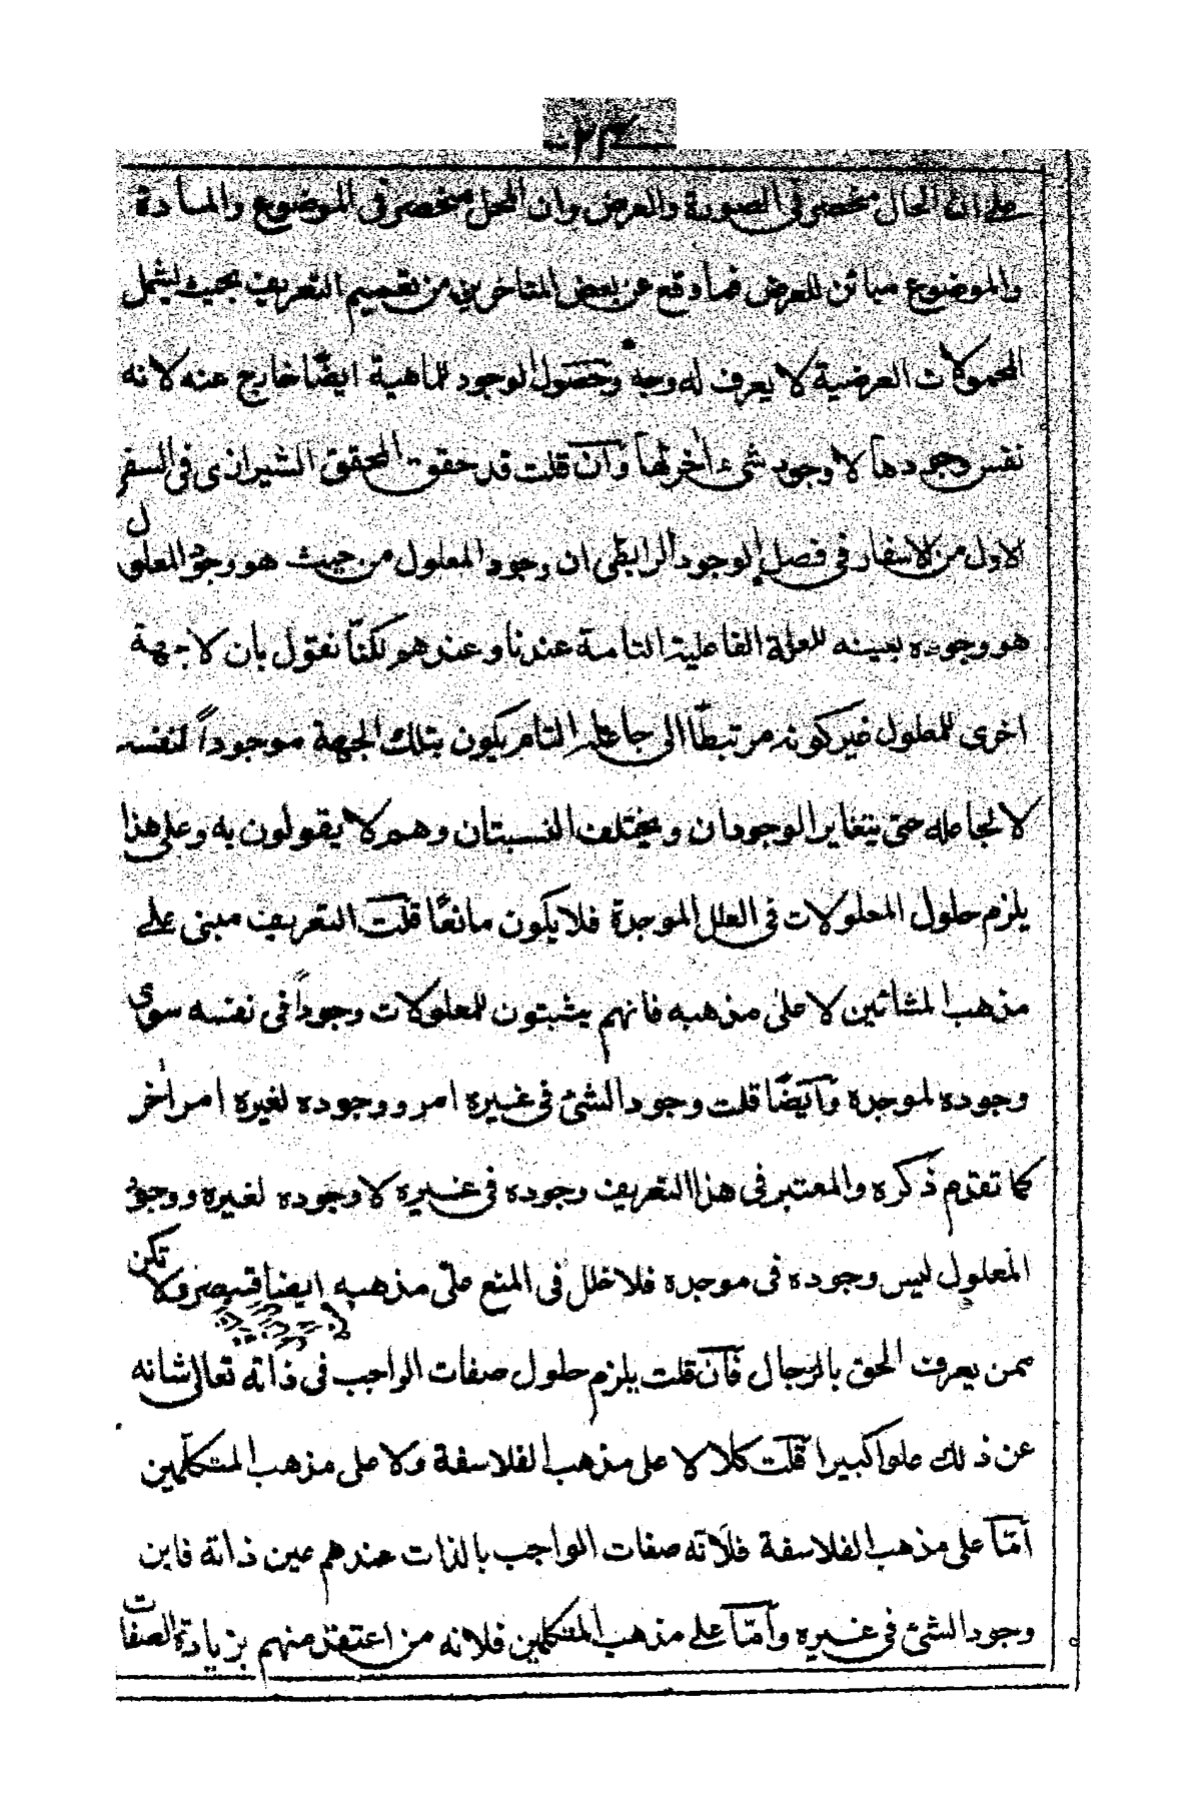 ٢٣
على ان الحال منحصر فى الصورة والعرض وان المحل منحصر فى الموضوع والمادة
والموضوع مبائن للعرض فما وقع عن بعض المتاخرين من تعميم التعريف بحيث يشمل
المحمولات العرضية لا يعرف له وجه وحصول الوجود للماهية ايضًا خارج عنه لانه
نفس وجودها لا وجود شىء اٰخر لها وان قلت قد حقق المحقق الشيرازى فى السفر
الاول من الاسفار فى فصل الوجود الرابطى ان وجود المعلول من حيث هو وجود المعلول
هو وجوده بعينه للعلة الفاعلية التامة عندنا وعندهم لكنّا نقول بان لا جهة
اخرى للمعلول غير كونه مرتبطًا الى جاعله التام يكون بتلك الجهة موجوداً لنفسه
لا لجاعله حتى يتغاير الوجودان ويختلف النسبتان وهم لا يقولون به وعلى هذا
يلزم حلول المعلولات فى العلل الموجدة فلا يكون مانعًا قلت التعريف مبنى على
مذهب المشائين لا على مذهبه فانهم يثبتون للمعلولات وجوداً فى نفسه سوى
وجوده لموجده وايضًا قلت وجود الشئ فى غيره امر ووجوده لغيره امر اٰخر
كما تقدم ذكره والمعتبر فى هذا التعريف وجوده فى غيره لا وجوده لغيره ووجود
المعلول ليس وجوده فى موجده فلا خلل فى المنع على مذهبه ايضا فتبصر ولا تكن
ممن يعرف الحق بالرجال فان قلت يلزم حلول صفات الواجب فى ذاته تعالى شانه
عن ذلك علوا كبيرا قلت كلا لا على مذهب الفلاسفة ولا على مذهب المتكلّمين
أمّا على مذهب الفلاسفة فلانه صفات الواجب بالذات عندهم عين ذاته فاين
وجود الشئ فى غيره وأمّا على مذهب المتكلمين فلانه من اعتقد منهم بزيادة الصفات